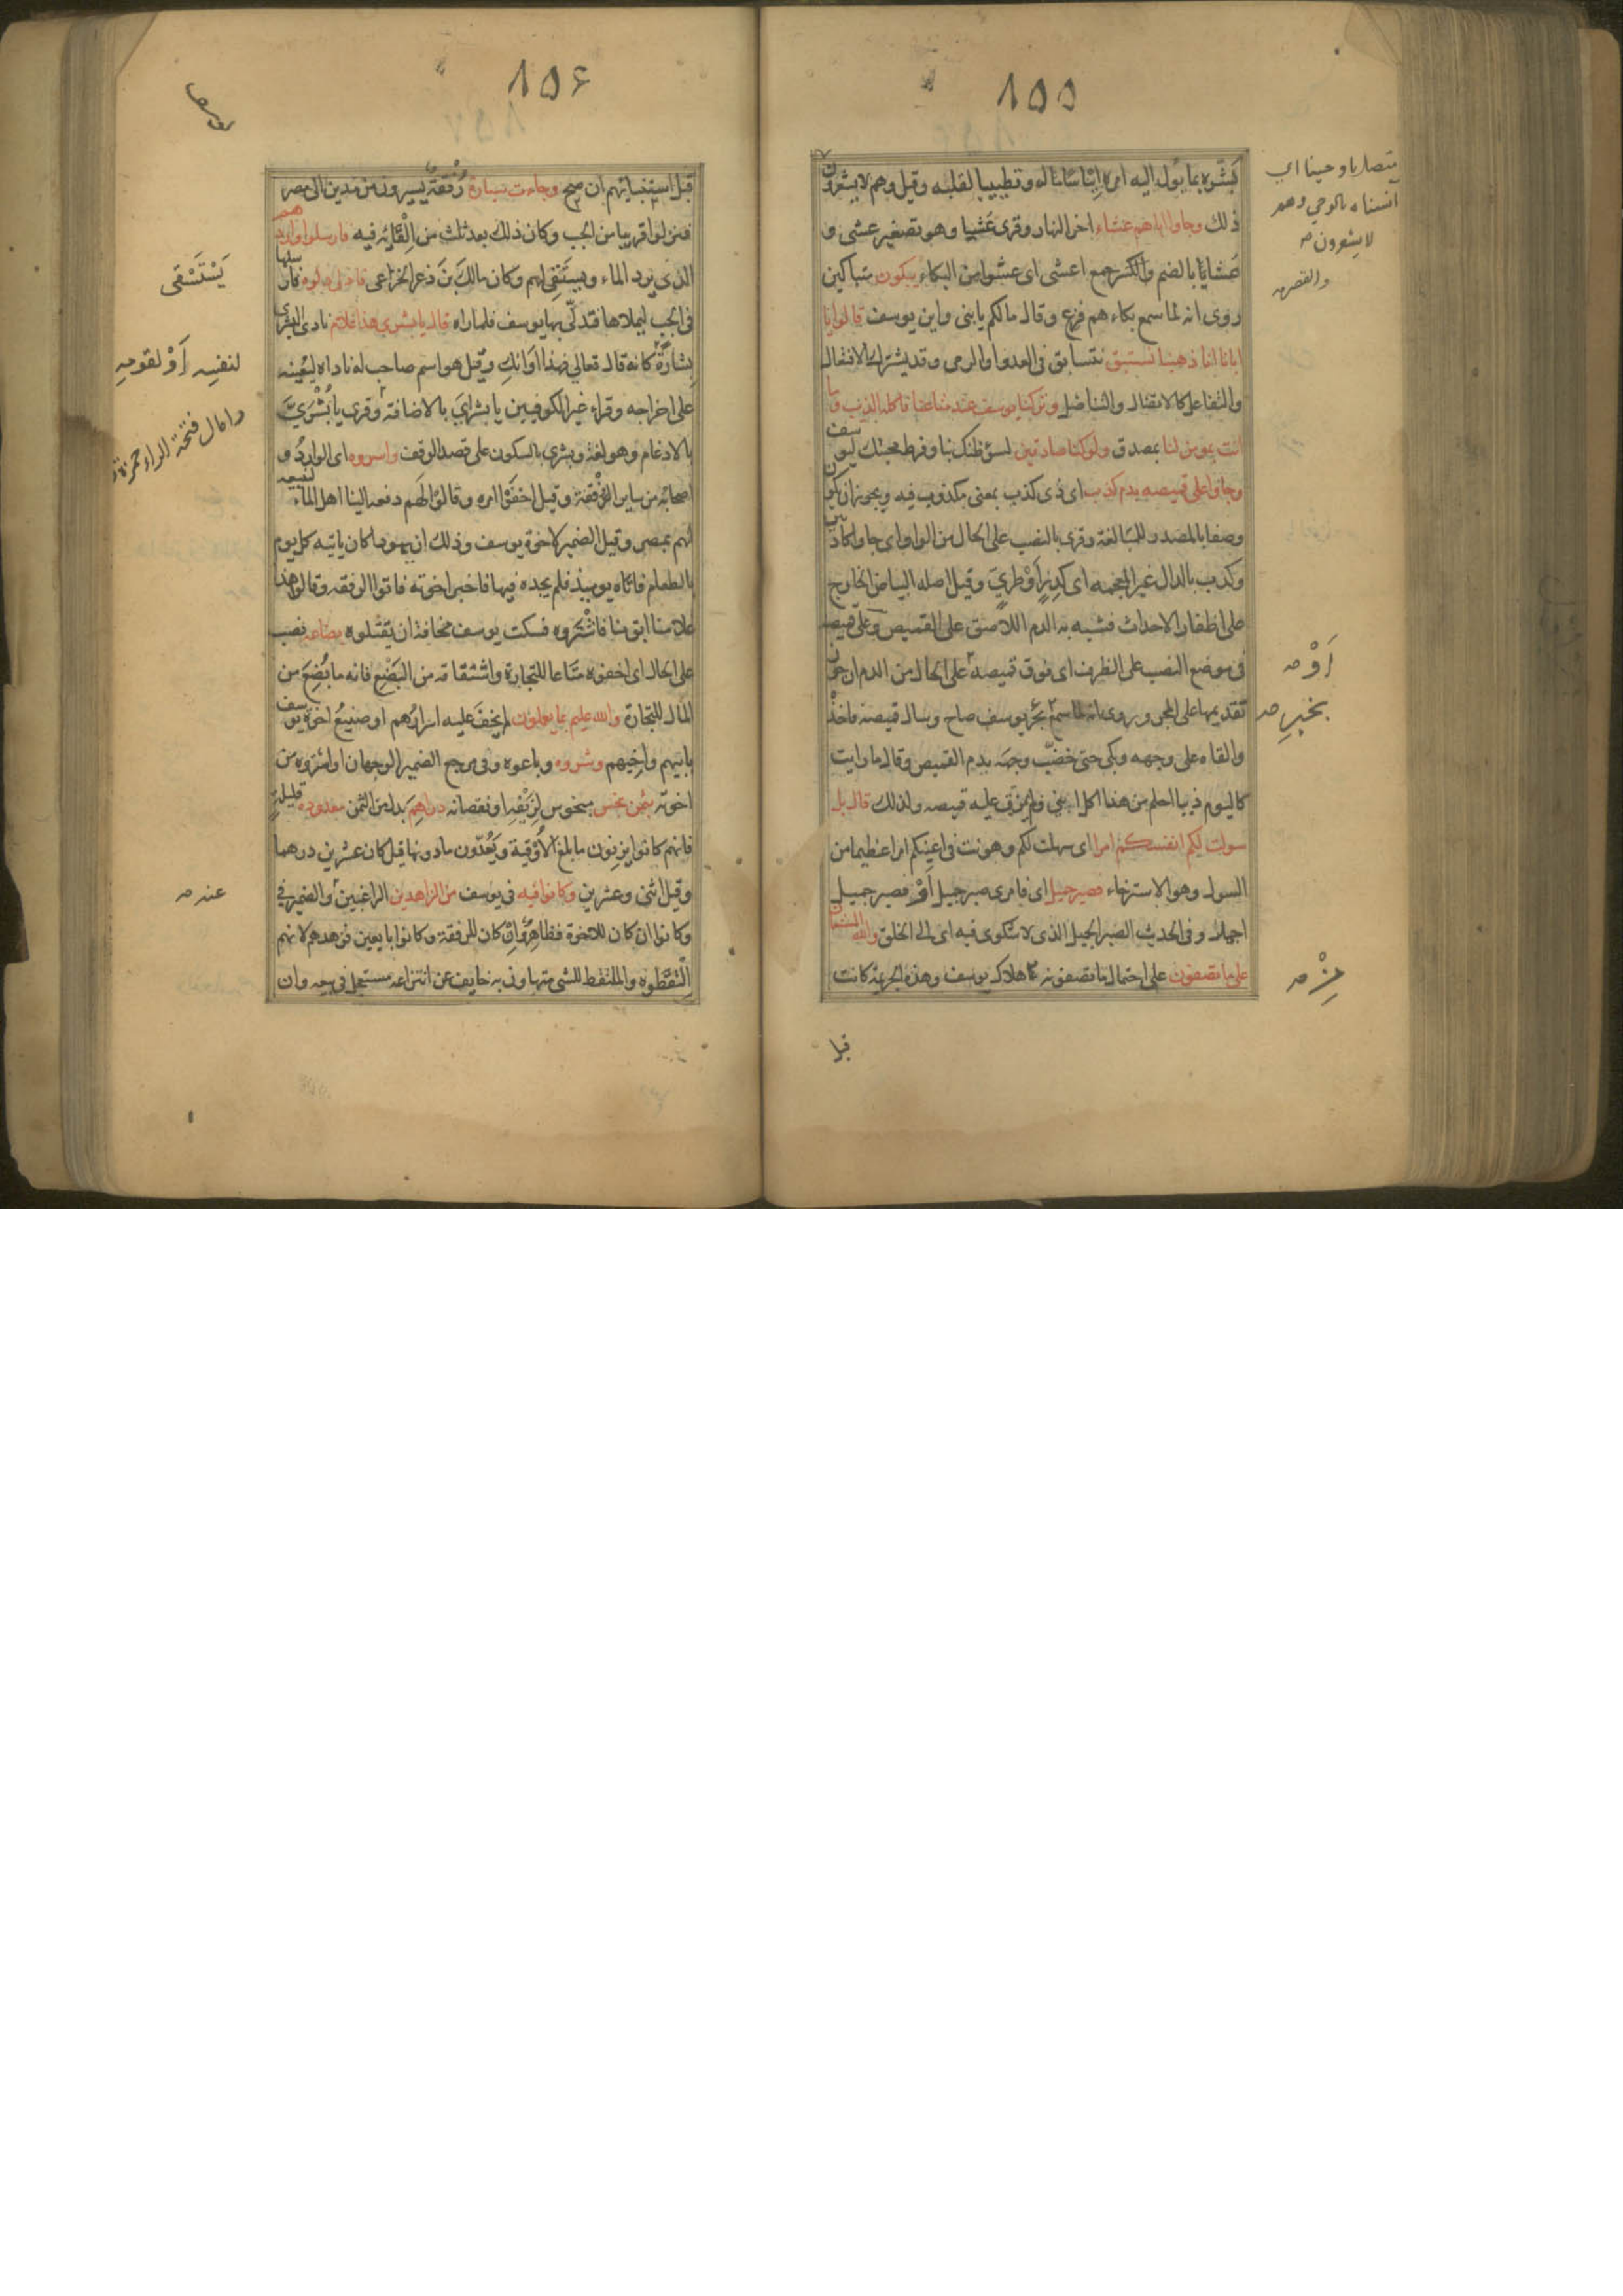 ٨٥٥
بشره بما يول اليه امره ايناسا له وتطييبا لقلبه وقيل وهم لا يشعرون
ذلك وجاوا اباهم عشاء اخر النهار وقرى عَشِيا وهو تصغير عشى و
عشايا بالضم والكسر جمع اعشى اى عشوا من البكاء يبكون متباكين
روى انه لما سمع بكاءهم فزع وقال مالكم يا بنى واين يوسف قالوا يا
ابانا انا ذهبنا نستبق نتسابق فى العدو او الرمى وقد يشترك الافتعال
والتفاعل كالانتضال والتناضل وتركنا يوسف عند متاعنا فاكله الذيب وما
انت بمومن لنا بمصدق ولو كنا صادقين لسؤ ظنك بنا وفرط محبتك ليوسف
وجاوا على قميصه بدم كذب اى ذى كذب بمعنى مكذوب فيه ويجوز ان يكون
وصفا بالمصدر للمبالغة وقرى بالنصب على الحال من الواو اى جاوا كاذبين
وكدب بالدال غير المعجمه اى كدِرٍ اَوْ طرِيٍ وقيل اصله البياض الخارج
على اظفار الاحداث فشبه به الدم اللاصق على القميص وعلى قميصه
فى موضع النصب على الظرف اى فوق قميصه على الحال من الدم ان جوز
تقديمها على المجرور روى انه لما سمع بخبر يوسف صاح وسال قميصه فاخذ
والقاه على وجهه وبكى حتى خضّب وجهه بدم القميص وقال ما رايت
كاليوم ذيبا احلم من هذا اكل ابنى ولم يمزق عليه قميصه ولذلك قال بل
سولت لكم انفسكم امرا اى سهلت لكم وهونت فى اعينكم امرا عظيما من
السول وهو الاسترخاء فصبر جميل اى فامرى صبر جميل اَوْ فصبر جميل
اجمل وفى الحديث الصبر الجميل الذى لا شكوى فيه اى الى الخلق والله المستعان
على ما تصفون على احتمال ما تصفونه من هلاك يوسف وهذه الجريمة كانت
متصل باوحينا اي
انسناه بالوحي وهم
لا يشعرون صه
والقصر صه
اَوْ صه
بخبرِ صه
قبل
٨٥٦
قبل استنبايهم ان صح وجاءت سيارة رُفقةٌ يسيرون من مدين الى مصر
فنزلوا قريبا من الجب وكان ذلك بعد ثلث من اِلْقَائِه فيه فارسلوا واردهم
الذى يرد الماء ويستقى لهم وكان مالكَ بنَ ذعر الخزاعى فادلى دلوه فارسلها
فى الجب ليملاها فتدلّى بها يوسف فلما راه قال يا بشرى هذا غلام نادى البشرى
بشارة كانه قال تعالى فهذا اَوَانكِ وقيل هو اسم صاحب له ناداه ليُعِينه
على اخراجه وقراء غير الكوفيين يا بشرايَ بالاضافة وقرى يا بُشْرَيَّ
بالادغام وهو لغة وبشرى بالسكون على قصد الوقف واسروه اى الوارد و
اصحابه من ساير الرُفْقة وقيل اخفَوْا امره وقالوا لهم دفعه الينا اهل الماء لنبيعه
لهم بمصر وقيل الضمير لاخوة يوسف وذلك ان يهودا كان ياتيه كل يوم
بالطعام فاتاه يوميذ فلم يجده فيها فاخبر اخوته فاتوا الرفقه وقالوا هذا
غلامنا ابق منا فاشْتَرُوه فسكت يوسف مخافة ان يقتلوه بضاعه نصب
على الحال اى اخفوه متاعا للتجارة واشتقاقه من البَضْعِ فانه ما بُضِعَ من
المال للتجارة والله عليم بما يعملون لم يخفَ عليه اسرارُهم او صنيعُ اخوة يوسف
بابيهم واخيهم وشروه وباعوه وفى مرجع الضمير الوجهان او اشتروه من
اخوته بثمن بخس مبخوس لزَيْفِه او نقصانه دراهِمَ بدل من الثمن معدوده قليلةٍ
فانهم كانوا يزِنون ما بلغ الأُوْقية ويَعُدّون ما دونها قيل كان عشرين درهما
وقيل اثنى وعشرين وكانوا فيه فى يوسف من الزاهدين الراغبين والضمير فى
وكانوا ان كان للاخوة فظاهِرٌ وان كان للرفقة وكانوا بايعين فزهدهم لانهم
اِلْتَقَطوه والملتقط للشى متهاون به خايف عن انتزاعه مستعجل فى بيعه وان
يَسْتَسْقى
لنفسِه اَوْ لقومِهِ
وامال فتحة الراء حمزة
عنه صه